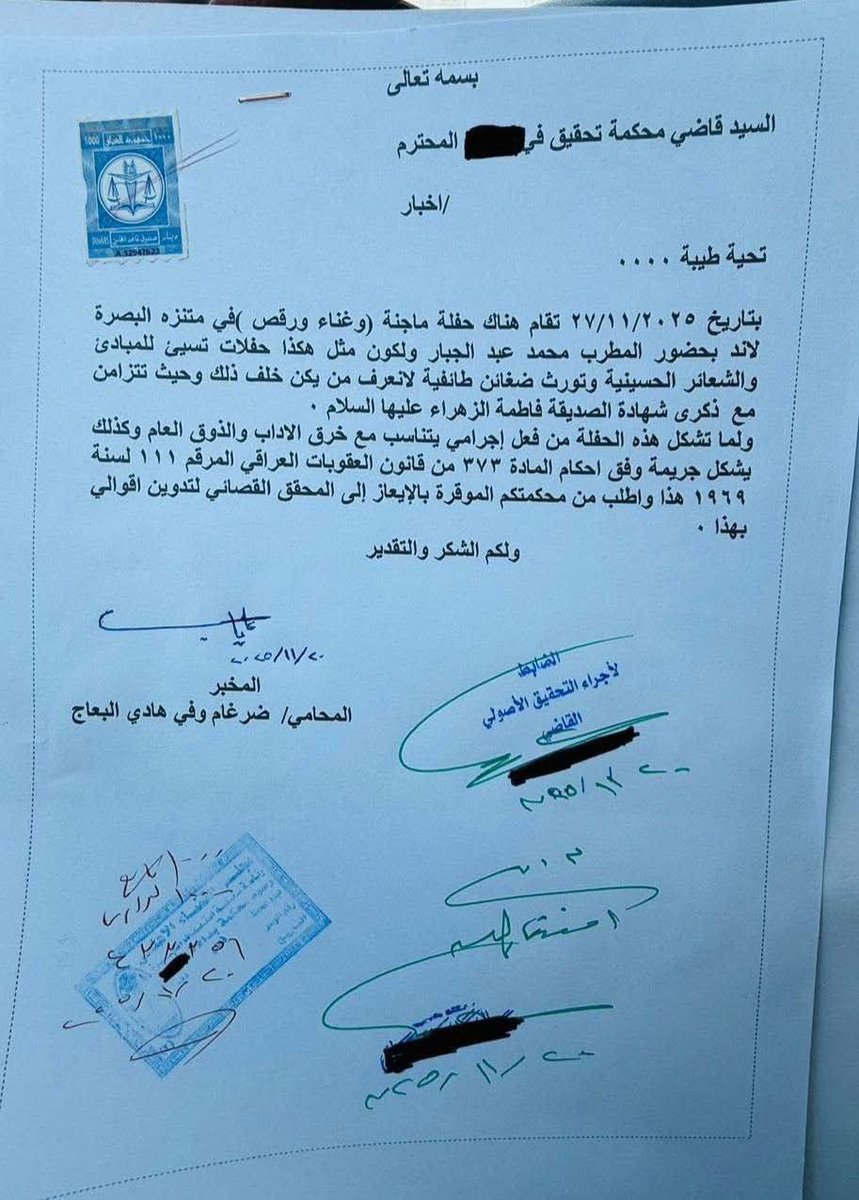 بسمه تعالى
السيد قاضي محكمة تحقيق في المحترم
/اخبار
تحية طيبة ٠٠٠٠
بتاريخ ٢٧/١١/٢٠٢٥ تقام هناك حفلة ماجنة (وغناء ورقص )في متنزه البصرة
لاند بحضور المطرب محمد عبد الجبار ولكون مثل هكذا حفلات تسيئ للمبادئ
والشعائر الحسينية وتورث ضغائن طائفية لانعرف من يكن خلف ذلك وحيث تتزامن
مع ذكرى شهادة الصديقة فاطمة الزهراء عليها السلام ٠
ولما تشكل هذه الحفلة من فعل إجرامي يتناسب مع خرق الاداب والذوق العام وكذلك
يشكل جريمة وفق احكام المادة ٣٧٣ من قانون العقوبات العراقي المرقم ١١١ لسنة
١٩٦٩ هذا واطلب من محكمتكم الموقرة بالإيعاز إلى المحقق القضائي لتدوين اقوالي
بهذا ٠
ولكم الشكر والتقدير
٢٠٢٥/١١/٢٠
المخبر
المحامي/ ضرغام وفي هادي البعاج
الضابط
لأجراء التحقيق الأصولي
القاضي
١٠٠٠
1000
A 32947623